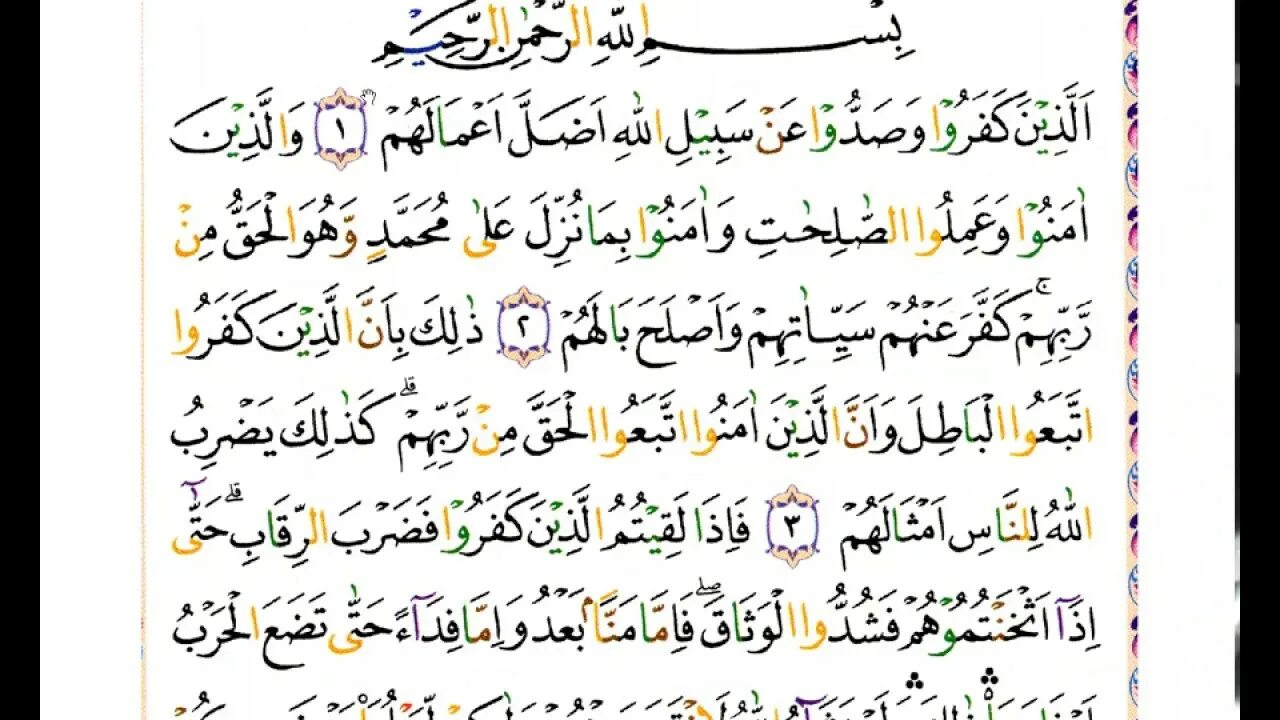 بِسْمِ اللّٰهِ الرَّحْمٰنِ الرَّحِيْمِ
اَلَّذِيْنَ كَفَرُوْا وَصَدُّوْا عَنْ سَبِيْلِ اللّٰهِ اَضَلَّ اَعْمَالَهُمْ ١ وَالَّذِيْنَ
اٰمَنُوْا وَعَمِلُوا الصّٰلِحٰتِ وَاٰمَنُوْا بِمَا نُزِّلَ عَلٰى مُحَمَّدٍ وَّهُوَ الْحَقُّ مِنْ
رَّبِّهِمْۚ كَفَّرَ عَنْهُمْ سَيِّاٰتِهِمْ وَاَصْلَحَ بَالَهُمْ ٢ ذٰلِكَ بِاَنَّ الَّذِيْنَ كَفَرُوا
اتَّبَعُوا الْبَاطِلَ وَاَنَّ الَّذِيْنَ اٰمَنُوا اتَّبَعُوا الْحَقَّ مِنْ رَّبِّهِمْۗ كَذٰلِكَ يَضْرِبُ
اللّٰهُ لِلنَّاسِ اَمْثَالَهُمْ ٣ فَاِذَا لَقِيْتُمُ الَّذِيْنَ كَفَرُوْا فَضَرْبَ الرِّقَابِۗ حَتّٰٓى
اِذَآ اَثْخَنْتُمُوْهُمْ فَشُدُّوا الْوَثَاقَۖ فَاِمَّا مَنًّاۢ بَعْدُ وَاِمَّا فِدَآءً حَتّٰى تَضَعَ الْحَرْبُ